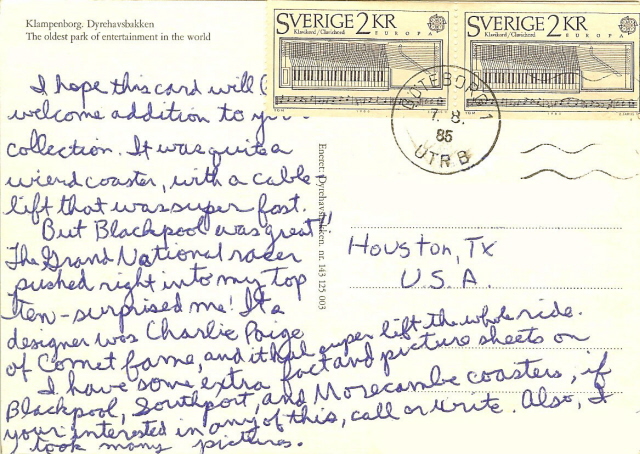 Klampenborg. Dyrehavsbakken
The oldest park of entertainment in the world
SVERIGE 2 KR
Klavikord / Clavichord EUROPA
SVERIGE 2 KR
Klavikord / Clavichord EUROPA
GÖTEBORG 1
7. 8.
85
UTR B
I hope this card will
welcome addition to
collection. It was quite a
wierd coaster, with a cable
lift that was super fast.
But Blackpool was great!!
The Grand National racer
pushed right into my top
ten - surprised me! It's
designer was Charlie Paige
of Comet fame, and it had super lift the whole ride.
I have some extra fact and picture sheets on
Blackpool, Southport, and Morecambe coasters, if
your interested in any of this, call or write. Also, I
took many pictures.
Eneret: Dyrehavsbakken. nr. 143 125 003
Houston, Tx
U.S.A.